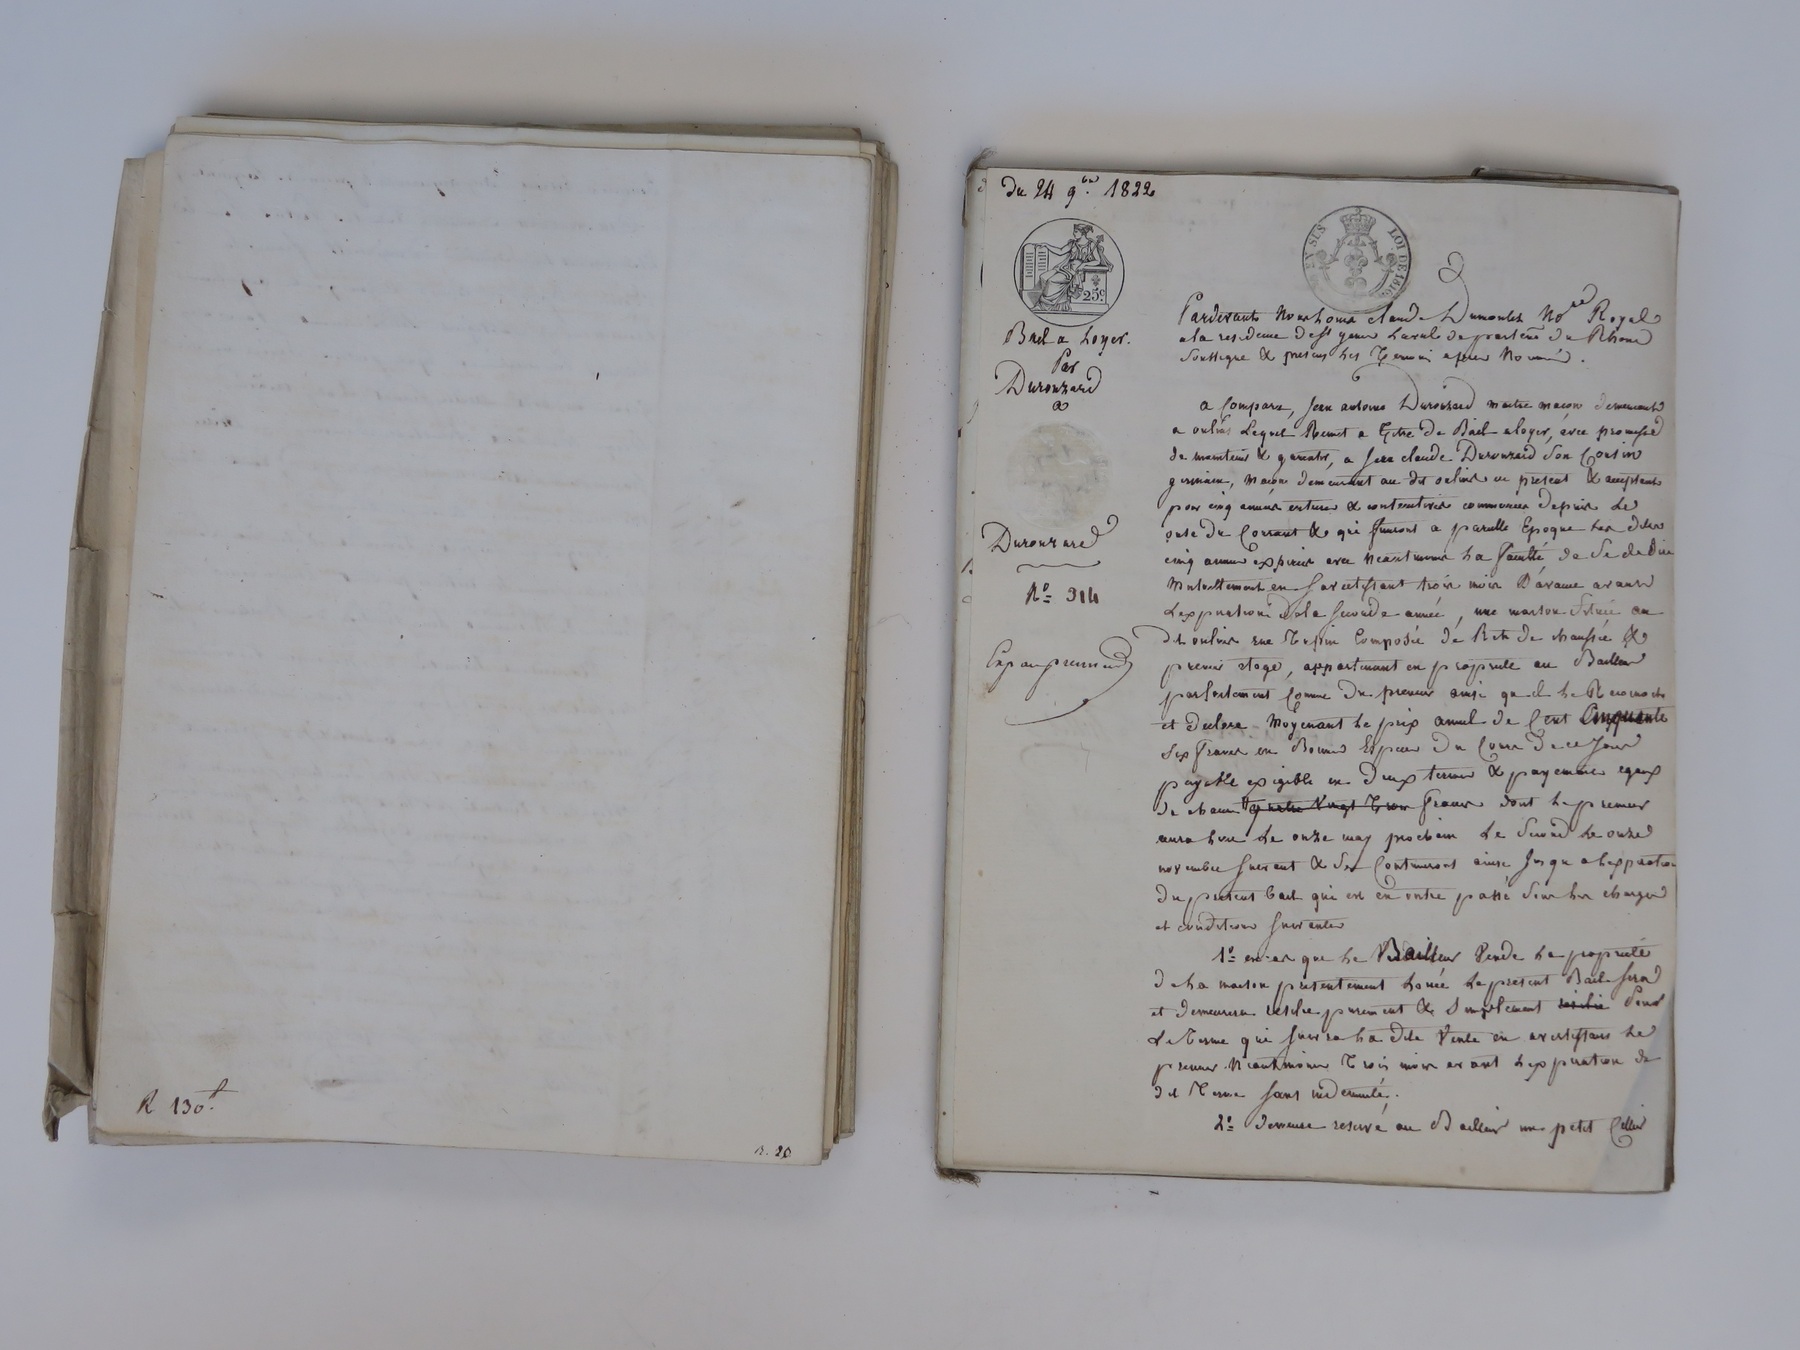 R 130.f
R. 20
du 24 9bre 1822
25c
LOI DE 1816
Bail a Loyer.
Par
Durouzard
a
Durouzard
No 314
Exp au preneur
Pardevant Nous Louis Claude Dumoulin Nore Royal
a la residence de St genis Laval departemt du Rhone
soussigné & presens les Temoins apres Nommés.
a Comparu, Jean antoine Durouzard maitre maçon demeurant
a oulins Lequel Remet a Titre de Bail a loyer, avec promesse
de maintenir & garantir, a Jean claude Durouzard son Cousin
germain, maçon demeurant au dit oulins ici present & acceptant
pour cinq années entieres & consecutives commencées depuis Le
onze du Courant & qui finiront a pareille Epoque Les dites
cinq années expirées avec Neantmoins La faculté de Se dedire
Mutuellement en Savertissant trois mois D'avance avant
Lexpiration de la Seconde année, une maison Située au
dit oulins rue Composée de Retz de chaussée &
premier etage, appartenant en propriete au Bailleur
parfaitement Connue du preneur ainsi quil Le Reconnoit
et declare Moyenant Le prix annuel de Cent Cinquante
six francs en Bonnes Especes du Cours de ce Jour
payable exigible en deux termes & payemens egaux
de chacun quatre Vingt Trois francs dont Le premier
aura lieu Le onze may prochain Le Second Le onze
novembre Suivant & Se Continueront ainsi Jusqu a Lexpiration
du present bail qui est en outre passé Sous Les charges
et conditions Suivantes
1o en cas que Le Bailleur Vende La propriété
de La maison presentement Louée Le present Bail Sera
et demeurera resilié purement & Simplement resilié Pour
Le Terme qui Suivra La dite Vente en avertissant Le
preneur Neantmoins Trois mois avant Lexpiration du
dit Terme Sans indemnité.
2o demeure reservé au Bailleur un petit Cellier